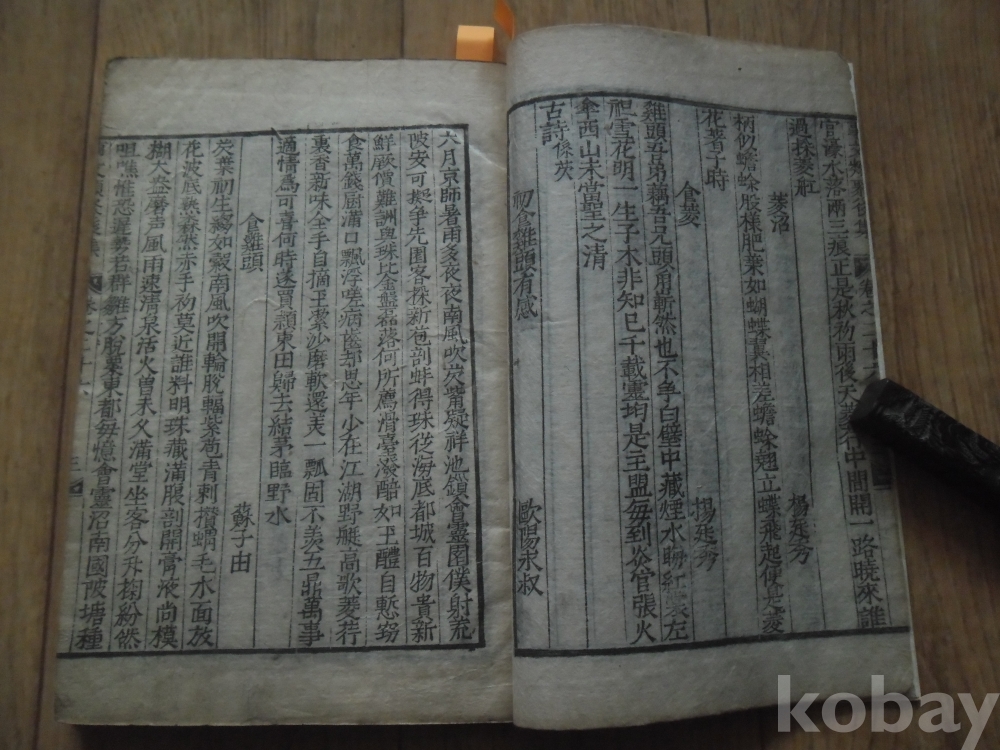 官濠水落兩三痕正是秋初雨後天菱荇中間開一路曉來誰
過採菱舡
菱沼 楊廷秀
柄似蟾蜍股樣肥葉如蝴蝶翼相差蟾蜍翹立蝶飛起便是菱
花著子時
食菱 楊廷秀
雞頭吾弟藕吾兄頭角嶄然也不爭白璧中藏煙水
祖雪花明一生子木非知已千載靈均是主盟每到炎官張火
傘西山未當聖之清
古詩 係芡
初食雞頭有感 歐陽永叔
六月京師暑雨多夜夜南風吹芡觜凝祥池鎖會靈園僕射荒
陂安可擬爭先園客採新苞剖蚌得珠從海底都城百物貴新
鮮厥價難詶與珠比金盤磊落何所薦滑臺潑醅如玉醴自慙竊
食萬錢厨滿口飄浮嗟病齒却思年少在江湖野艇高歌菱荇
裏香新味全手自摘玉潔沙磨軟還美一瓢固不羨五鼎萬事
適情爲可喜何時遂買潁東田歸去結茅臨野水
食雞頭 蘇子由
芡葉初生縐如縠南風吹開輪脫輻紫苞青刺攢蝟毛水面放
花波底熟森然赤手初莫近誰料明珠藏滿腹剖開膏液尚模
糊大盎磨声風雨速清泉活火曽未久滿堂坐客分升掬紛然
咀噍惟恐遲勢若群雛方脫粟東都每憶會靈沼南國陂塘種